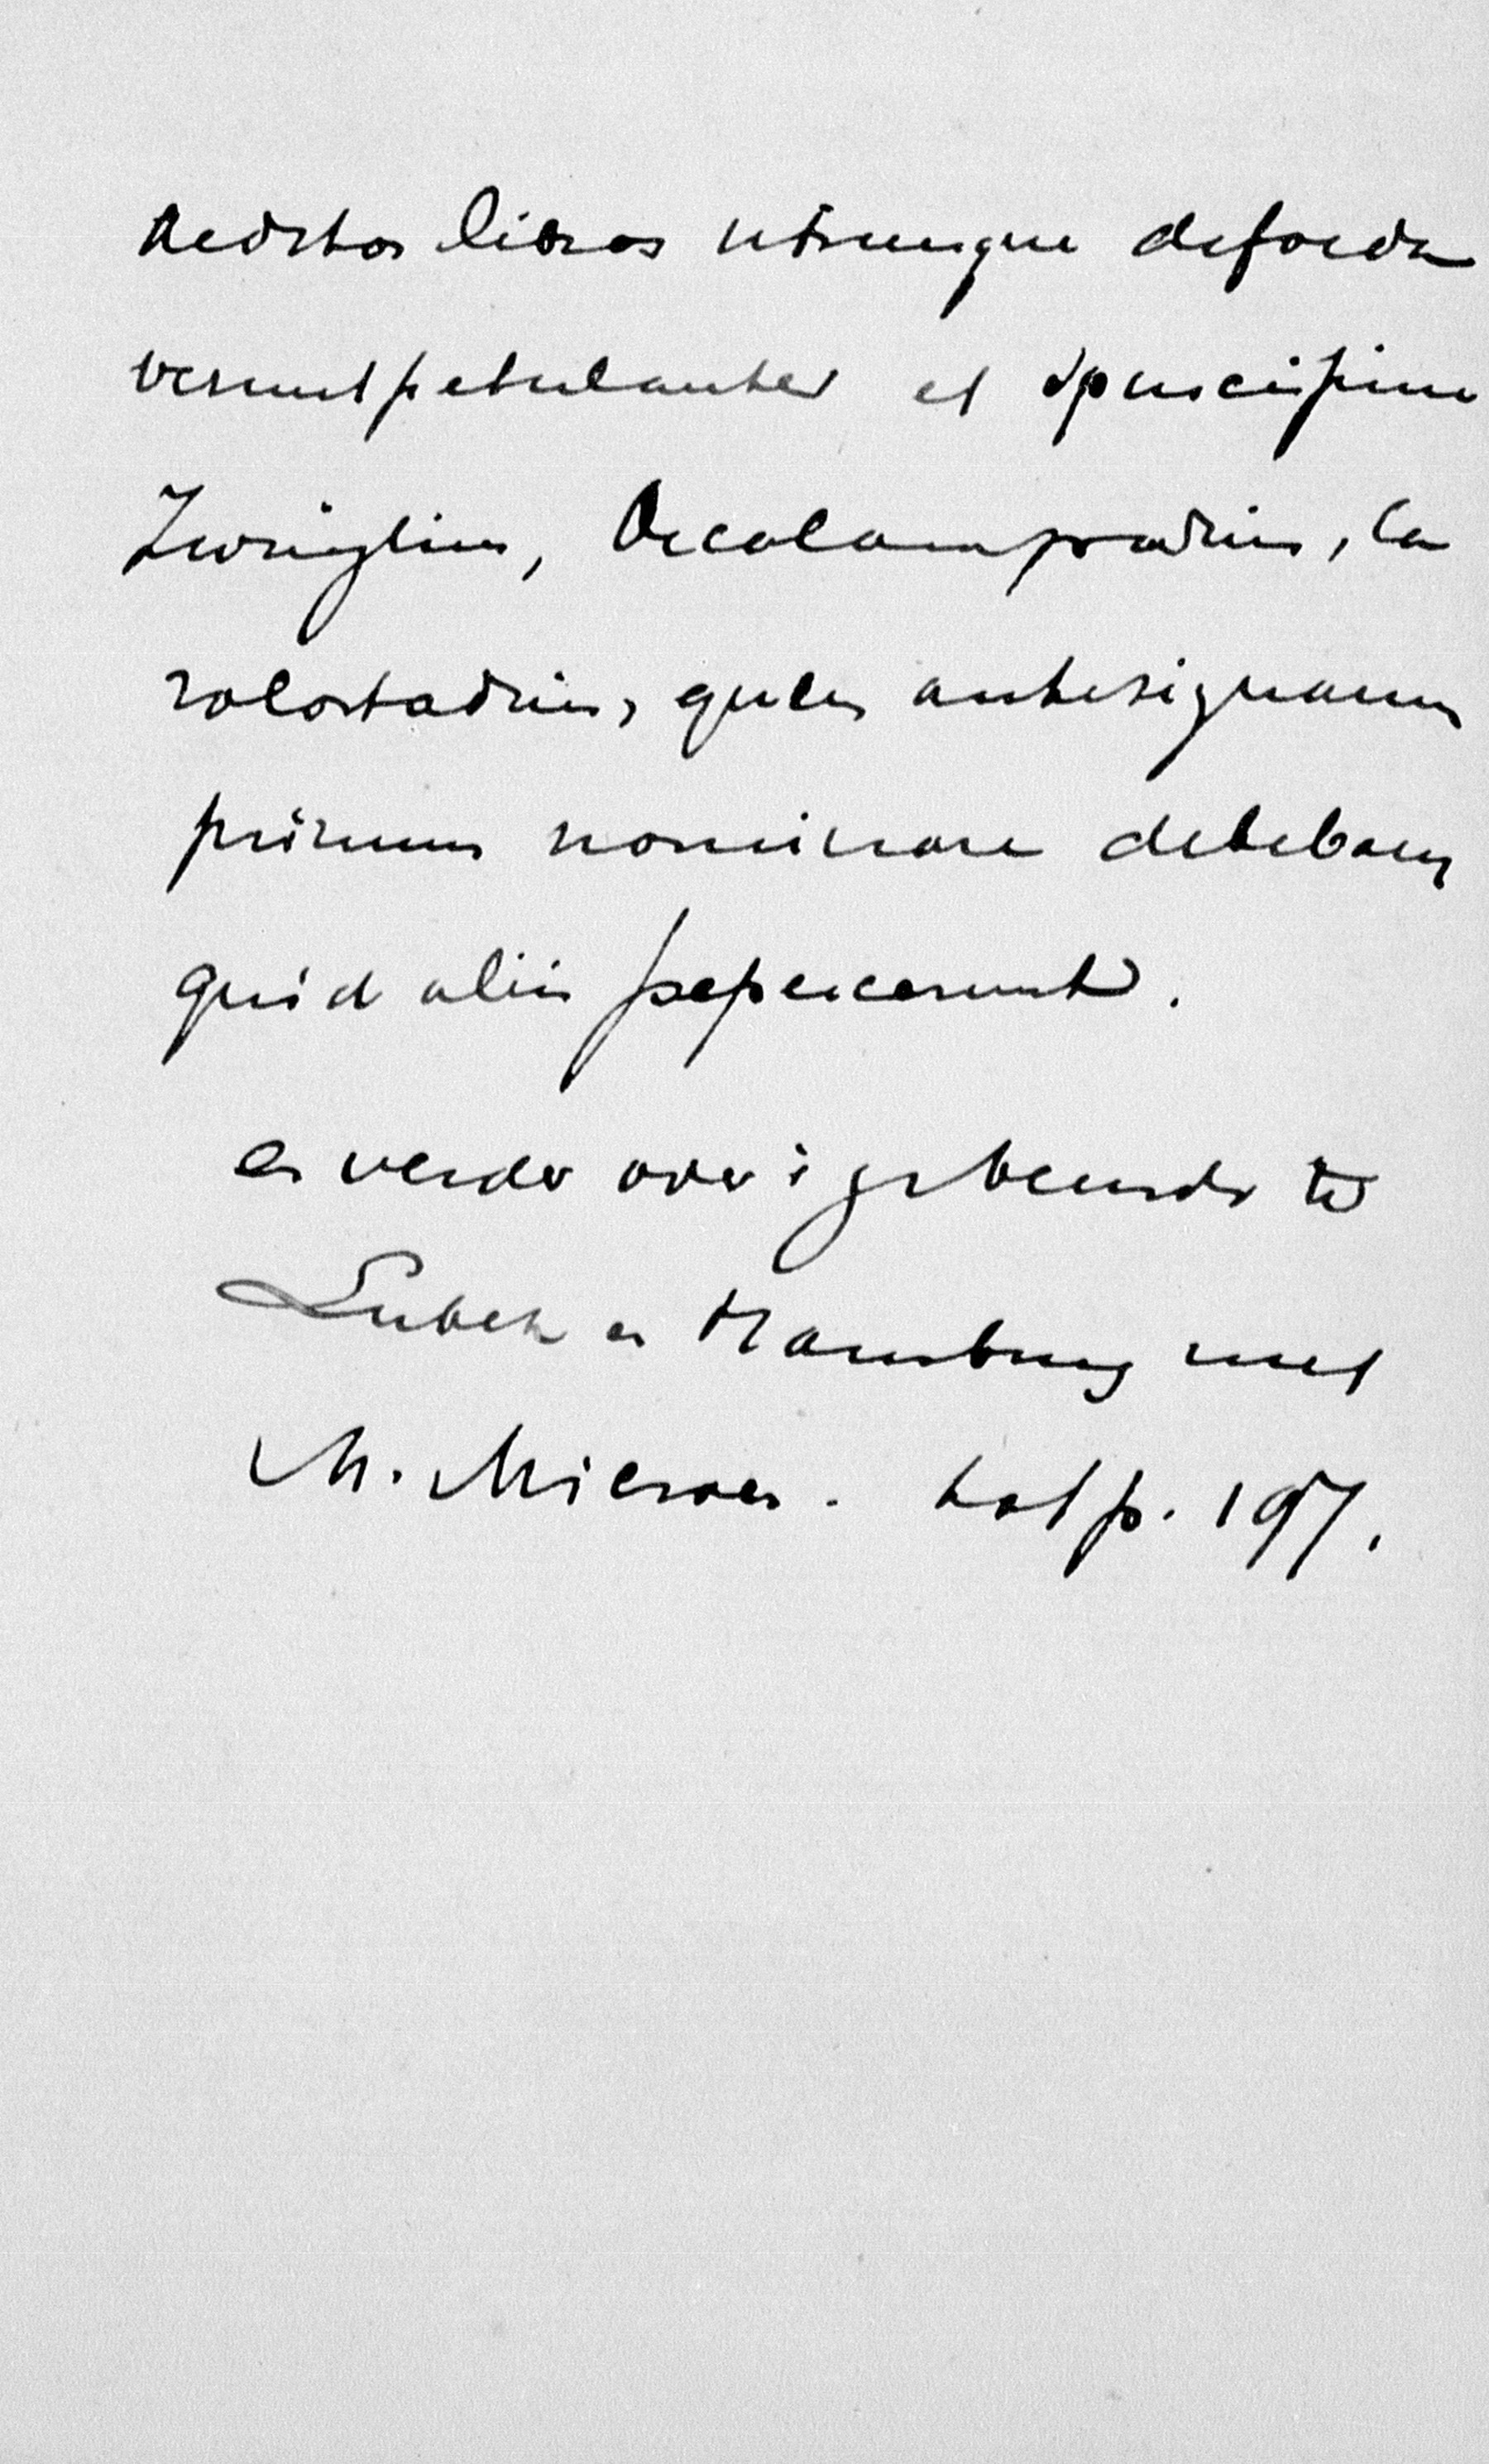 aeditos libros utrumque defoeda
verunt petulanter et spurcissime
Zwinglius, Oecolampadius, Ca
rolostadius, quem antesignanum
primum nominare debebam
quid alii pepererunt.
en verder over 't gebeurde te
Lubek en Hamburg met
M. Micron. tot p. 197.